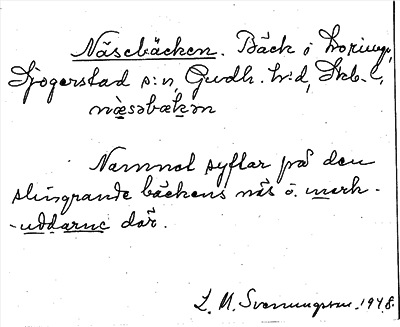 Näsebäcken. Bäck i Loringa,
Sjogerstad s:n, Gudh. h:d, Skb. l.,
næ̀səbækən
Namnet syftar på den
slingrande bäckens näs ö. mark-
-uddarne där.
L. M. Svenungsson. 1948.